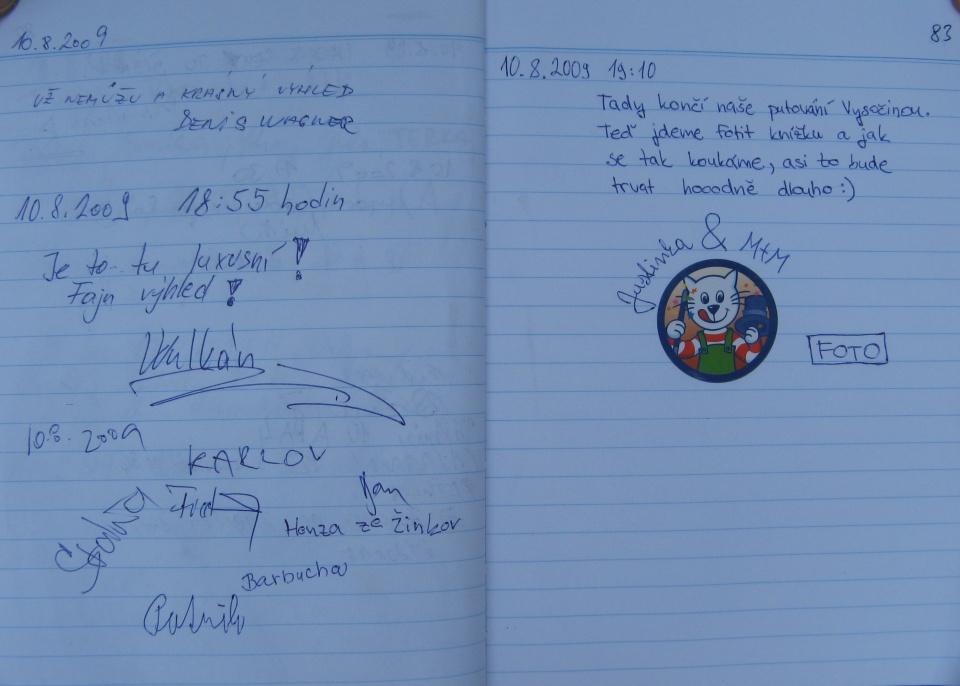 10.8.2009
UŽ NEMŮŽU A KRÁSNÝ VÝHLED
DENIS WAGNER
10.8.2009 18:55 hodin
Je to tu luxusní!
Fajn výhled!
Vulkán
10.8. 2009
KARLOV
Jan
Honza ze Žinkov
Barbucha
83
10.8.2009 19:10
Tady končí naše putování Vysočinou.
Teď jdeme fotit knížku a jak
se tak koukáme, asi to bude
trvat hooodně dlouho :)
Justinka & M+M
FOTO